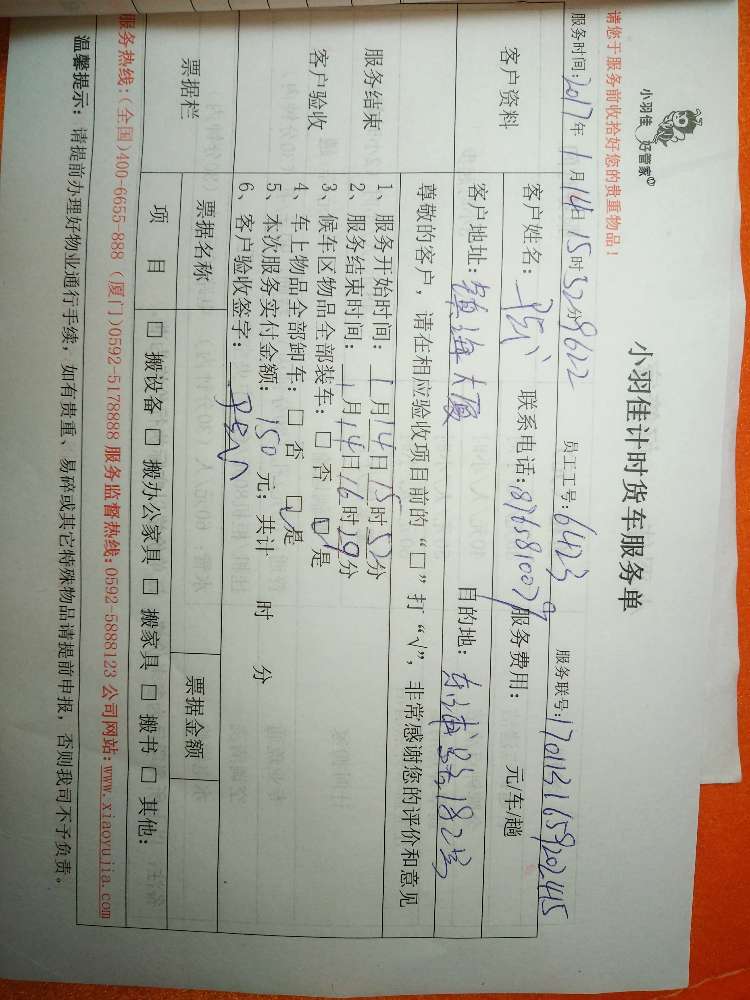 小羽佳 好管家
小羽佳计时货车服务单
请您于服务前收拾好您的贵重物品！
服务时间：2017年1月14日15时52分 9622 员工工号：6423 服务联号：1701131659202415
客户资料
客户姓名： 联系电话：8765810079 服务费用： 元/车/趟
客户地址：镇海大厦 目的地：东浦路182号
服务结束
客户验收
尊敬的客户，请在相应验收项目前的“□”打“√”，非常感谢您的评价和意见
1、服务开始时间：1月14日15时52分
2、服务结束时间：1月14日16时29分
3、候车区物品全部装车：□ 否 □√是
4、车上物品全部卸车：□ 否 □√是
5、本次服务实付金额：150元；共计 时 分
6、客户验收签字：
票据栏
票据名称 票据金额
项目 □ 搬设备 □ 搬办公家具 □ 搬家具 □ 搬书 □ 其他：
服务热线：(全国)400-6655-888 (厦门)0592-5178888 服务监督热线：0592-5888123 公司网站：www.xiaoyujia.com
温馨提示：请提前办理好物业通行手续，如有贵重、易碎或其它特殊物品请提前申报，否则我司不予负责。